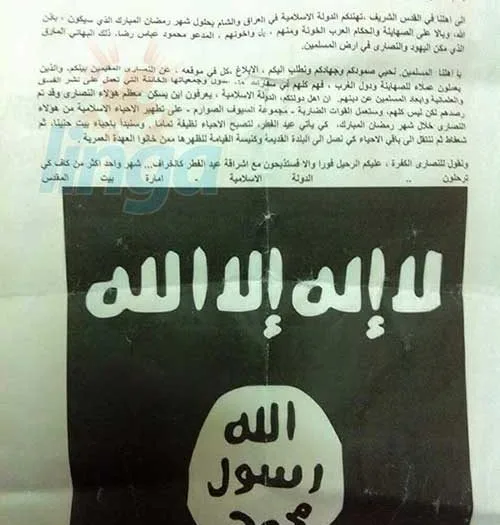 الى اهلنا في القدس الشريف، تهنئكم الدولة الاسلامية في العراق والشام بحلول شهر رمضان المبارك الذي سيكون ، باذن
الله، وبالا على الصهاينة والحكام العرب الخونة ومنهم ، بل واخونهم ، المدعو محمود عباس رضا، ذلك البهائي المارق
الذي مكن اليهود والنصارى في ارض المسلمين.
يا اهلنا المسلمين، نحيي صمودكم وجهادكم ونطلب اليكم ، الابلاغ ،كل في موقعه ، عن النصارى المقيمين بينكم، والذين
يعملون عملاء للصهاينة ودول الغرب ، فهم كلهم في وجمعياتها الخائنة التي تعمل على نشر الفسوق
والعلمانية وابعاد المسلمين عن دينهم. ان اهل دولتكم، الدولة الاسلامية ، يعرفون اين يسكن معظم هؤلاء النصارى وقد تم
رصدهم لكن ليس كلهم، وستعمل القوات الضاربة - مجموعة السيوف الصوارم - على تطهير الاحياء الاسلامية من هؤلاء
النصارى خلال شهر رمضان المبارك، كي يأتي عيد الفطر لتصبح الاحياء نظيفة تماما . وسنبدأ باحياء بيت حنينا، ثم
شعفاط ثم ننتقل الى باقي الاحياء كي نصل الى البلدة القديمة وكنيسة القيامة لنطهرها ممن خانوا العهدة العمرية
ونقول للنصارى الكفرة ، عليكم الرحيل فورا والا فستذبحون مع اشراقة عيد الفطر كالخراف... شهر واحد اكثر من كاف كي
ترحلون .. الدولة الاسلامية - امارة بيت المقدس
linga
لا إله إلا الله
الله
رسول
محمد